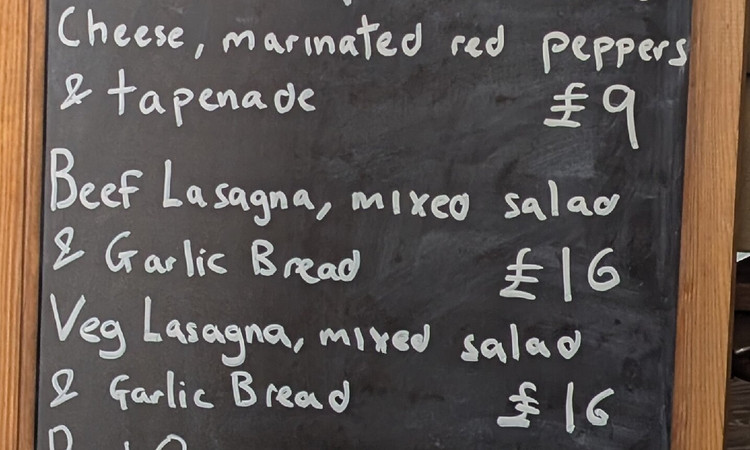 Cheese, marinated red peppers
& tapenade £9
Beef Lasagna, mixed salad
& Garlic Bread £16
Veg Lasagna, mixed salad
& Garlic Bread £16